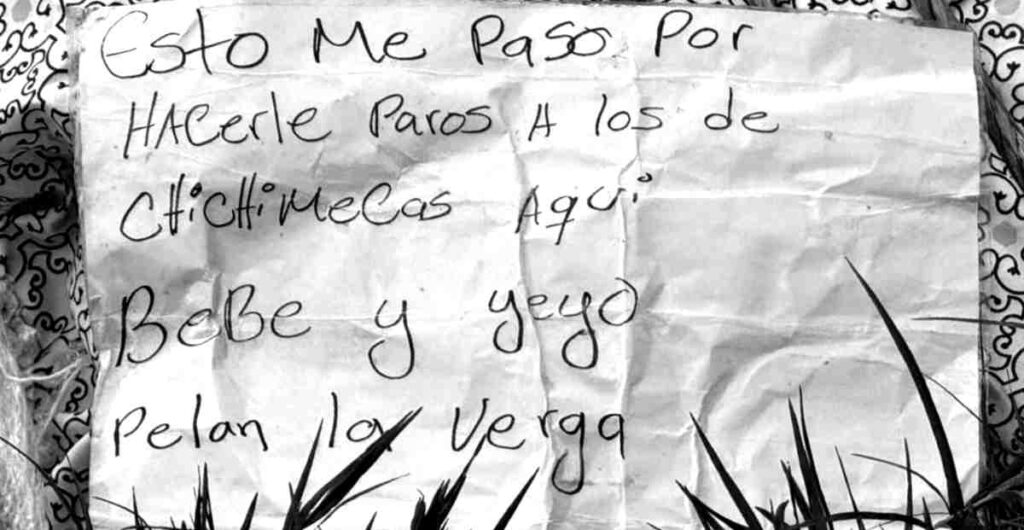 Esto Me Paso Por
HACerle Paros A los de
CHiCHiMeCas Aqui
BeBe y yeyo
Pelan la Verga